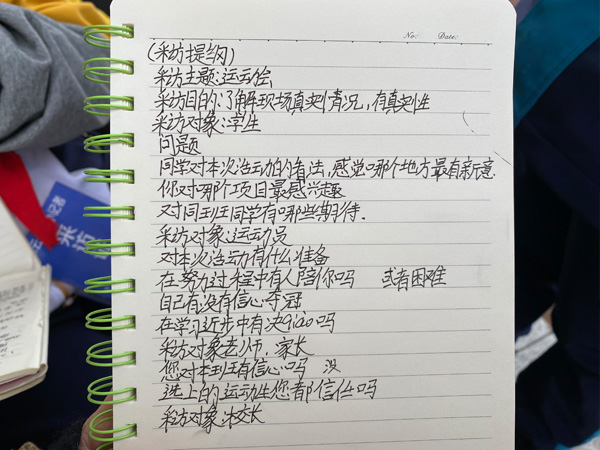 No:
Date:
(采访提纲)
采访主题:运动会
采访目的:了解现场真实情况,有真实性
采访对象:学生
问题
同学对本次活动的看法,感觉哪个地方最有新意.
你对哪个项目最感兴趣
对同班同学有哪些期待.
采访对象:运动员
对本次活动有什么准备
在努力过程中有人陪你吗 或者困难
自己有没有信心夺冠
在学习近步中有决qiào吗
采访对象老师,家长
您对本班有信心吗 没
选上的运动生您都信任吗
采访对象:校长
记者
采访